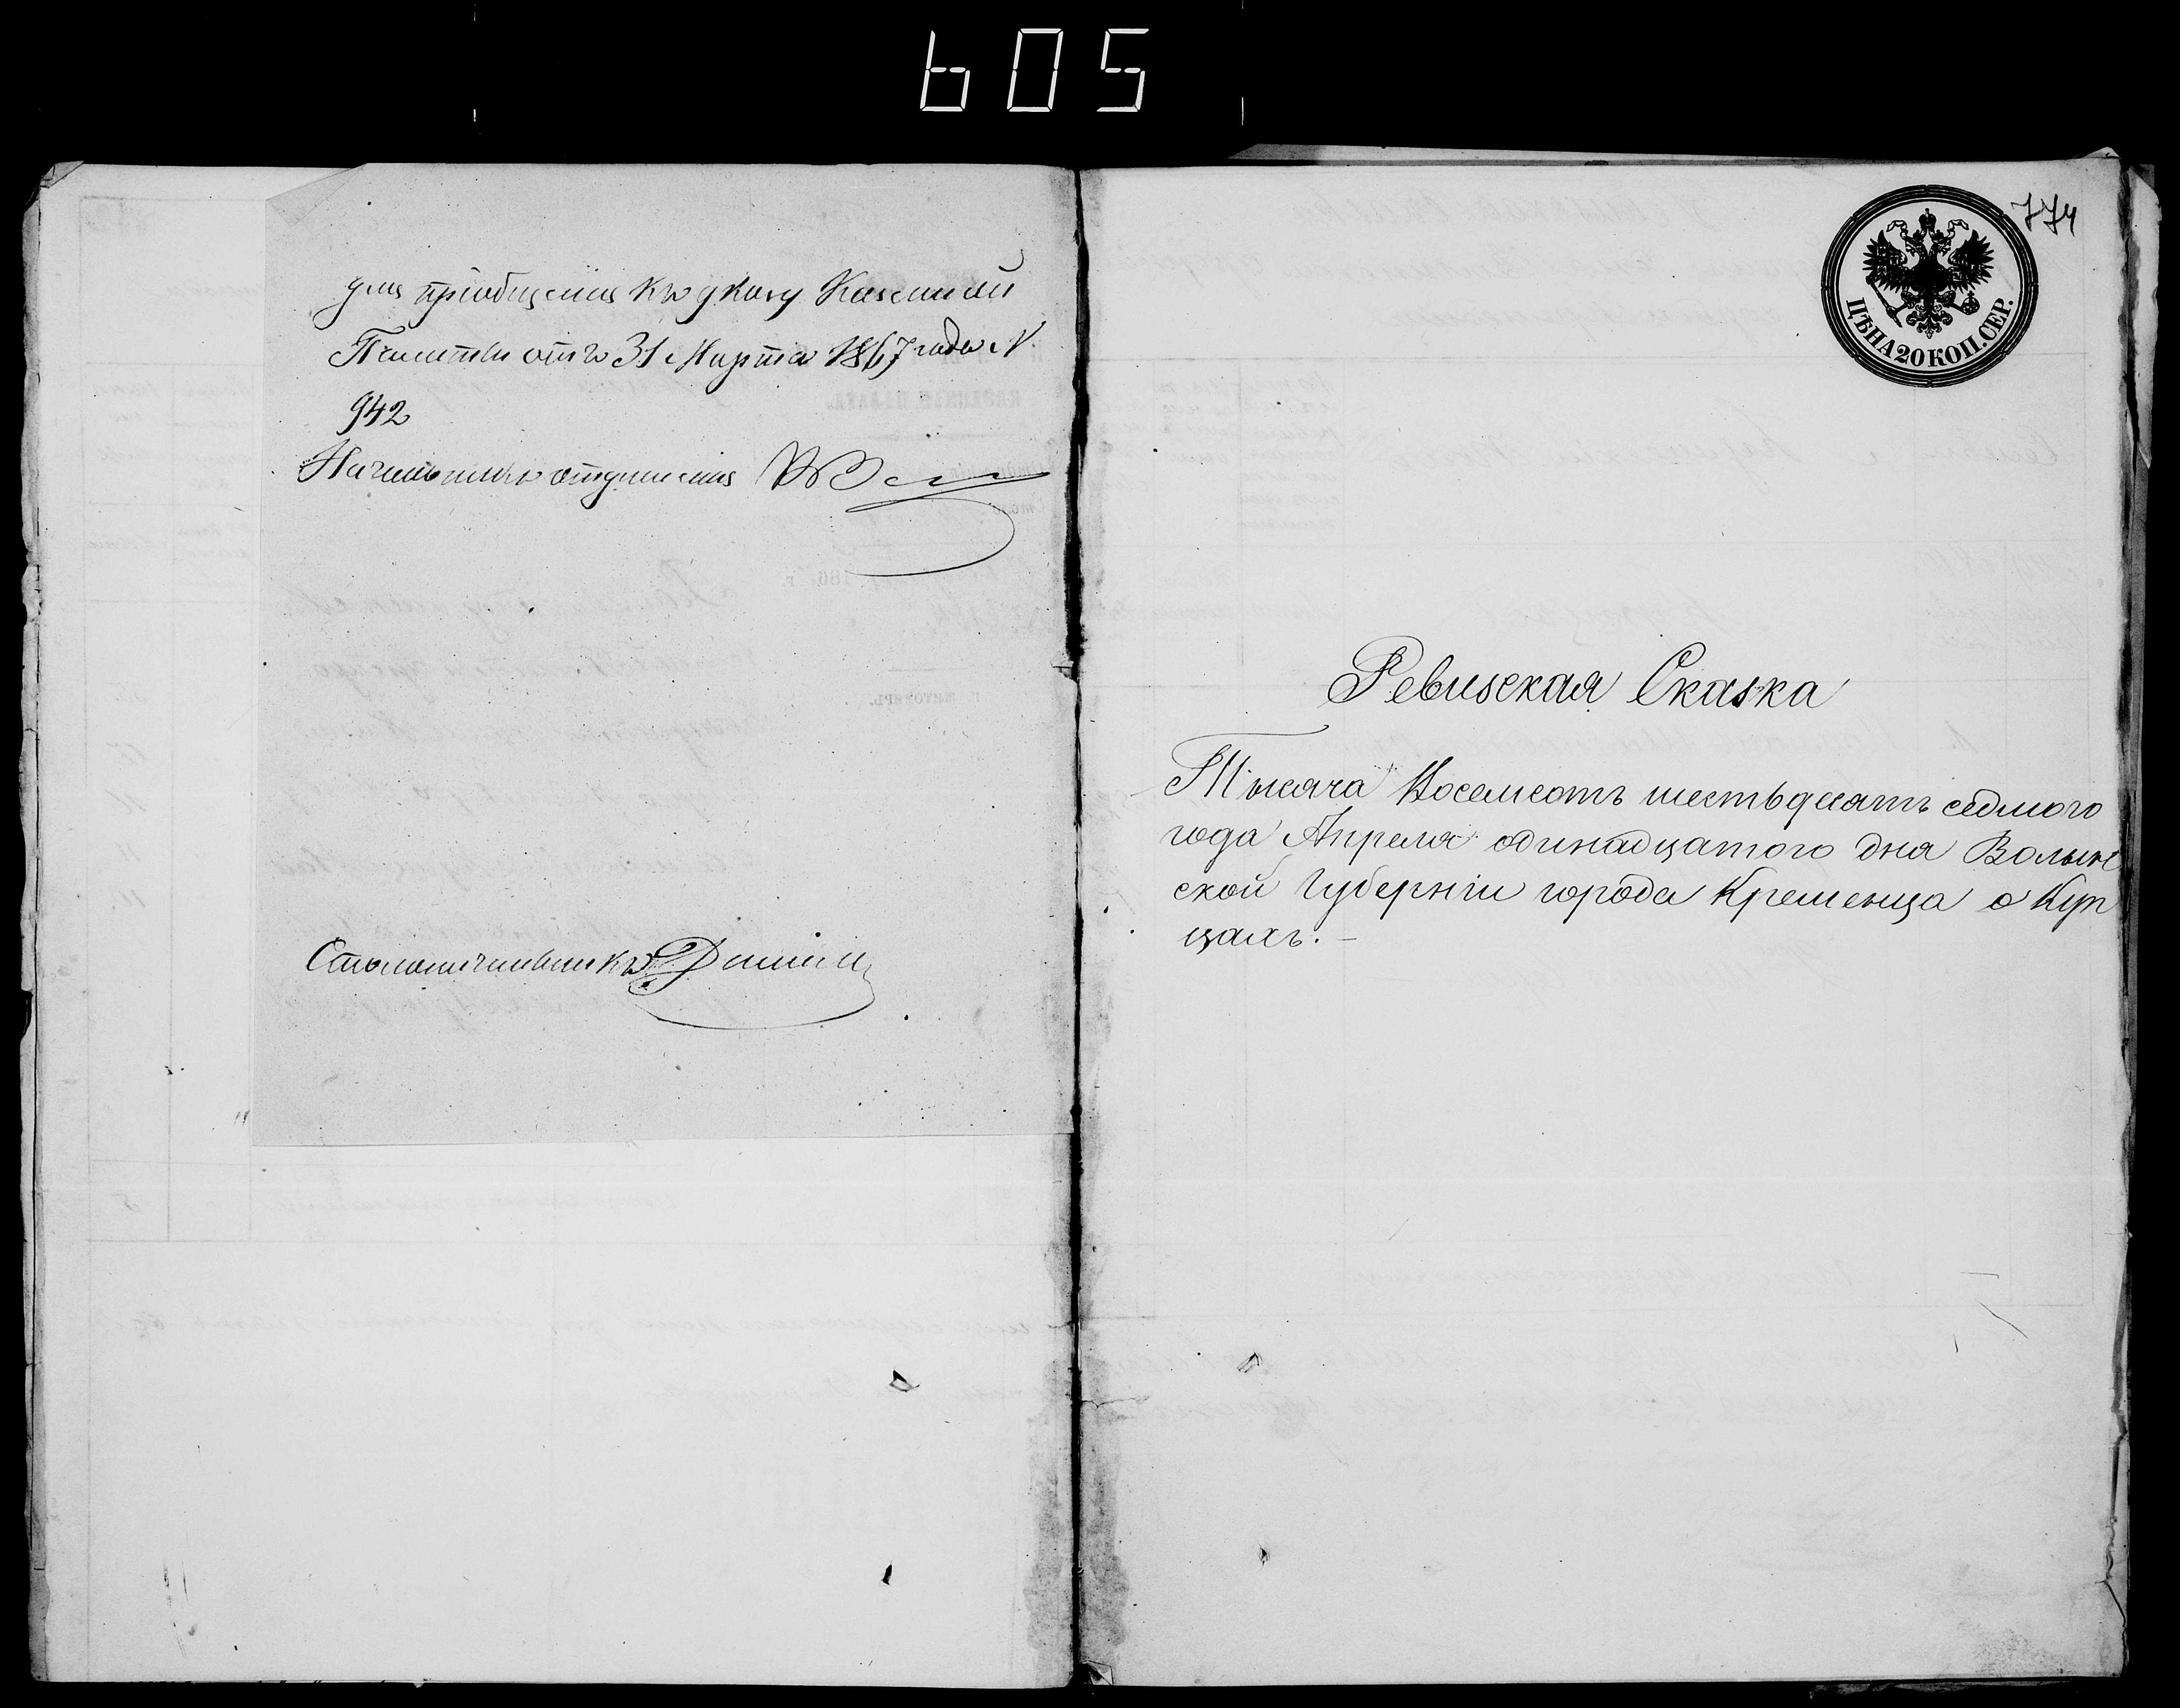 605
для пріобщенія къ указу Казенной
Палаты отъ 31 Марта 1867 года N
942
Начальникъ отделенія
Столоначальникъ
774
ЦѢНА 20 КОП. СЕР.
Ревизская Сказка
Тысяча Восемсотъ шестьдесятъ седмого
года Апреля одинадцатого дня Волын
ской Губерніи города Кременца о Куп
цахъ. –